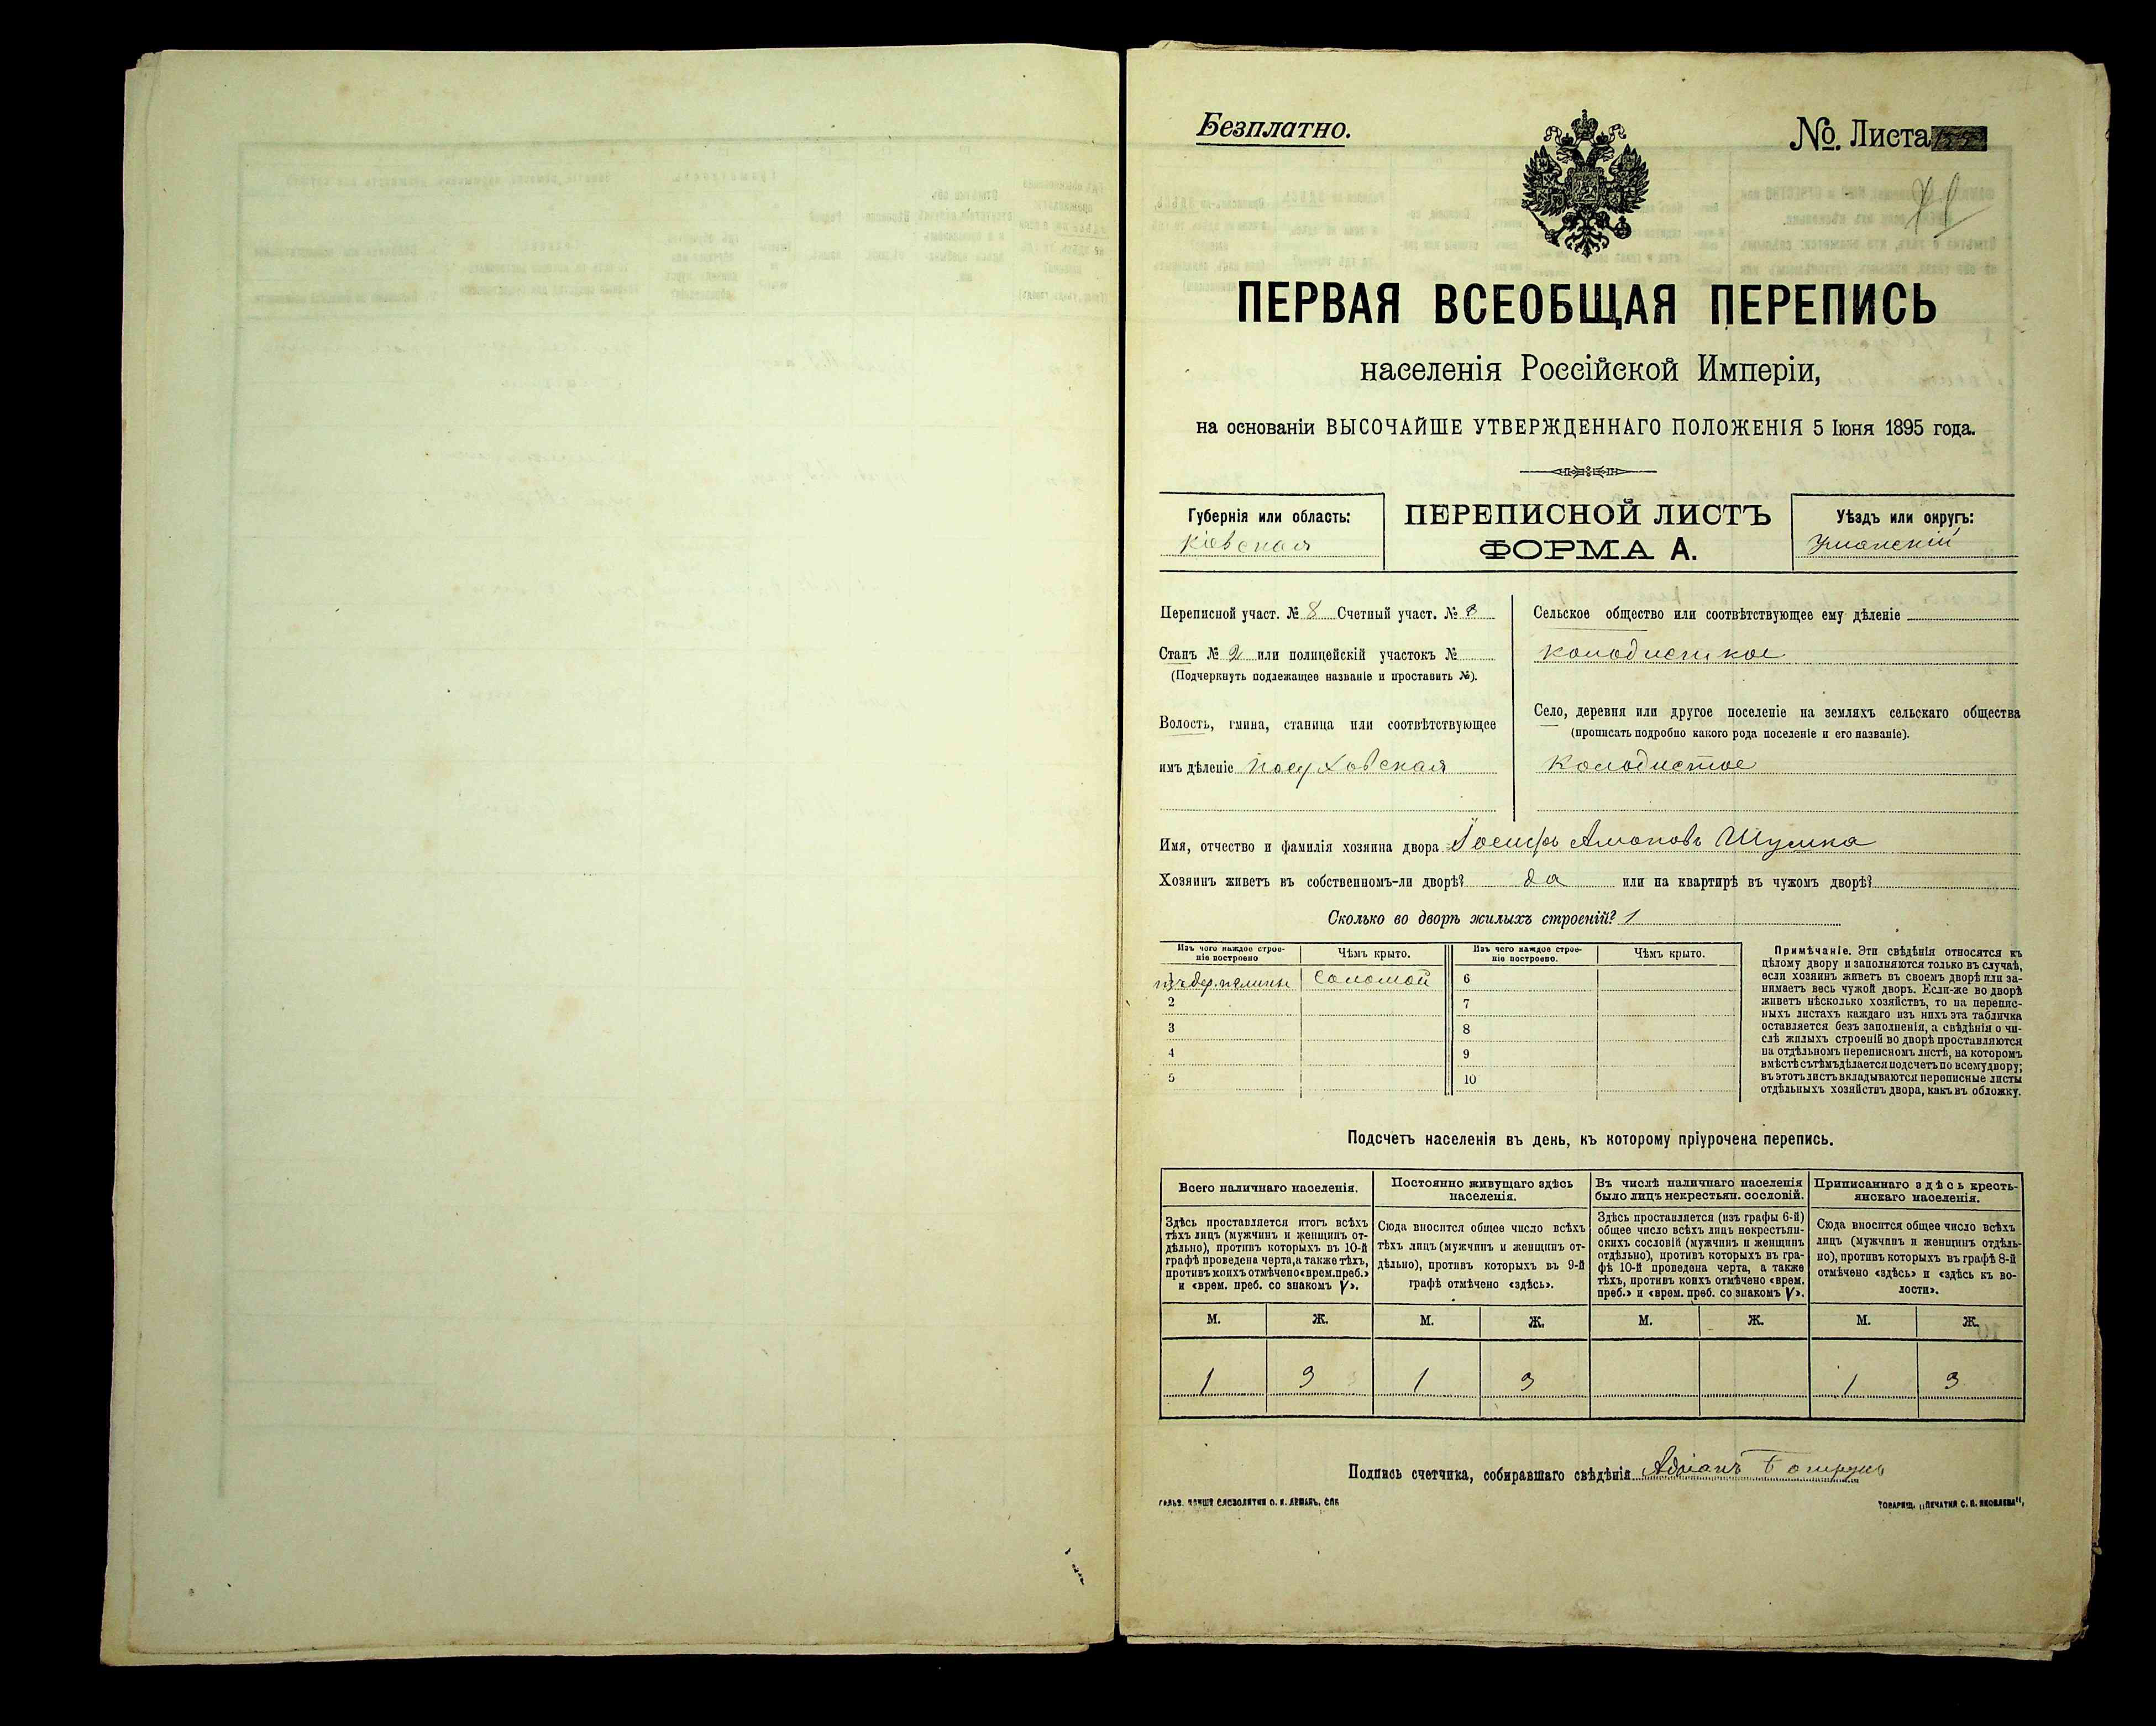 Безплатно.
№. Листа
71
ПЕРВАЯ ВСЕОБЩАЯ ПЕРЕПИСЬ
населенія Россійской Имперіи,
на основаніи ВЫСОЧАЙШЕ УТВЕРЖДЕННАГО ПОЛОЖЕНІЯ 5 Іюня 1895 года.
Губернія или область:
Кіевская
ПЕРЕПИСНОЙ ЛИСТЪ
ФОРМА А.
Уѣздъ или округъ:
Уманскій
Переписной участ. № 8 Счетный участ. № 8
Станъ № 2 или полицейскій участокъ №
(Подчеркнуть подлежащее названіе и проставить №).
Волость, гмина, станица или соотвѣтствующее
имъ дѣленіе Посуховская
Сельское общество или соотвѣтствующее ему дѣленіе
Колодистское
Село, деревня или другое поселеніе на земляхъ сельскаго общества
(прописать подробно какого рода поселеніе и его названіе).
Колодистое
Имя, отчество и фамилія хозяина двора Іосифъ Шумка
Хозяинъ живетъ въ собственномъ-ли дворѣ? да или на квартирѣ въ чужомъ дворѣ?
Сколько во дворѣ жилыхъ строеній? 1
Изъ чего каждое строе-
ніе построено
Чѣмъ крыто.
Изъ чего каждое строе-
ніе построено.
Чѣмъ крыто.
изъ дер. и глины соломой 6
2 7
3 8
4 9
5 10
Примѣчаніе. Эти свѣдѣнія относятся къ
цѣлому двору и заполняются только въ случаѣ,
если хозяинъ живетъ въ своемъ дворѣ или за-
нимаетъ весь чужой дворъ. Если-же во дворѣ
живетъ нѣсколько хозяйствъ, то на перепис-
ныхъ листахъ каждаго изъ нихъ эта табличка
оставляется безъ заполненія, а свѣдѣнія о чи-
слѣ жилыхъ строеній во дворѣ проставляются
на отдѣльномъ переписномъ листѣ, на которомъ
вмѣстѣ съ тѣмъ дѣлается подсчетъ по всему двору;
въ этотъ листъ вкладываются переписные листы
отдѣльныхъ хозяйствъ двора, какъ въ обложку.
Подсчетъ населенія въ день, къ которому пріурочена перепись.
Всего наличнаго населенія.
Здѣсь проставляется итогъ всѣхъ
тѣхъ лицъ (мужчинъ и женщинъ от-
дѣльно), противъ которыхъ въ 10-й
графѣ проведена черта, а также тѣхъ,
противъ коихъ отмѣчено «врем. преб.»
и «врем. преб. со знакомъ V».
Постоянно живущаго здѣсь
населенія.
Сюда вносится общее число всѣхъ
тѣхъ лицъ (мужчинъ и женщинъ от-
дѣльно), противъ которыхъ въ 9-й
графѣ отмѣчено «здѣсь».
Въ числѣ наличнаго населенія
было лицъ некрестьян. сословій.
Здѣсь проставляется (изъ графы 6-й)
общее число всѣхъ лицъ некрестьян-
скихъ сословій (мужчинъ и женщинъ
отдѣльно), противъ которыхъ въ гра-
фѣ 10-й проведена черта, а также
тѣхъ, противъ коихъ отмѣчено «врем.
преб.» и «врем. преб. со знакомъ V».
Приписаннаго здѣсь кресть-
янскаго населенія.
Сюда вносится общее число всѣхъ
лицъ (мужчинъ и женщинъ отдѣль-
но), противъ которыхъ въ графѣ 8-й
отмѣчено «здѣсь» и «здѣсь къ во-
лости».
М. Ж. М. Ж. М. Ж. М. Ж.
1 3 1 3 1 3
Подпись счетчика, собиравшаго свѣдѣнія Адріанъ
ТОВАРИЩ. „ПЕЧАТНЯ С. П. ЯКОВЛЕВА“,